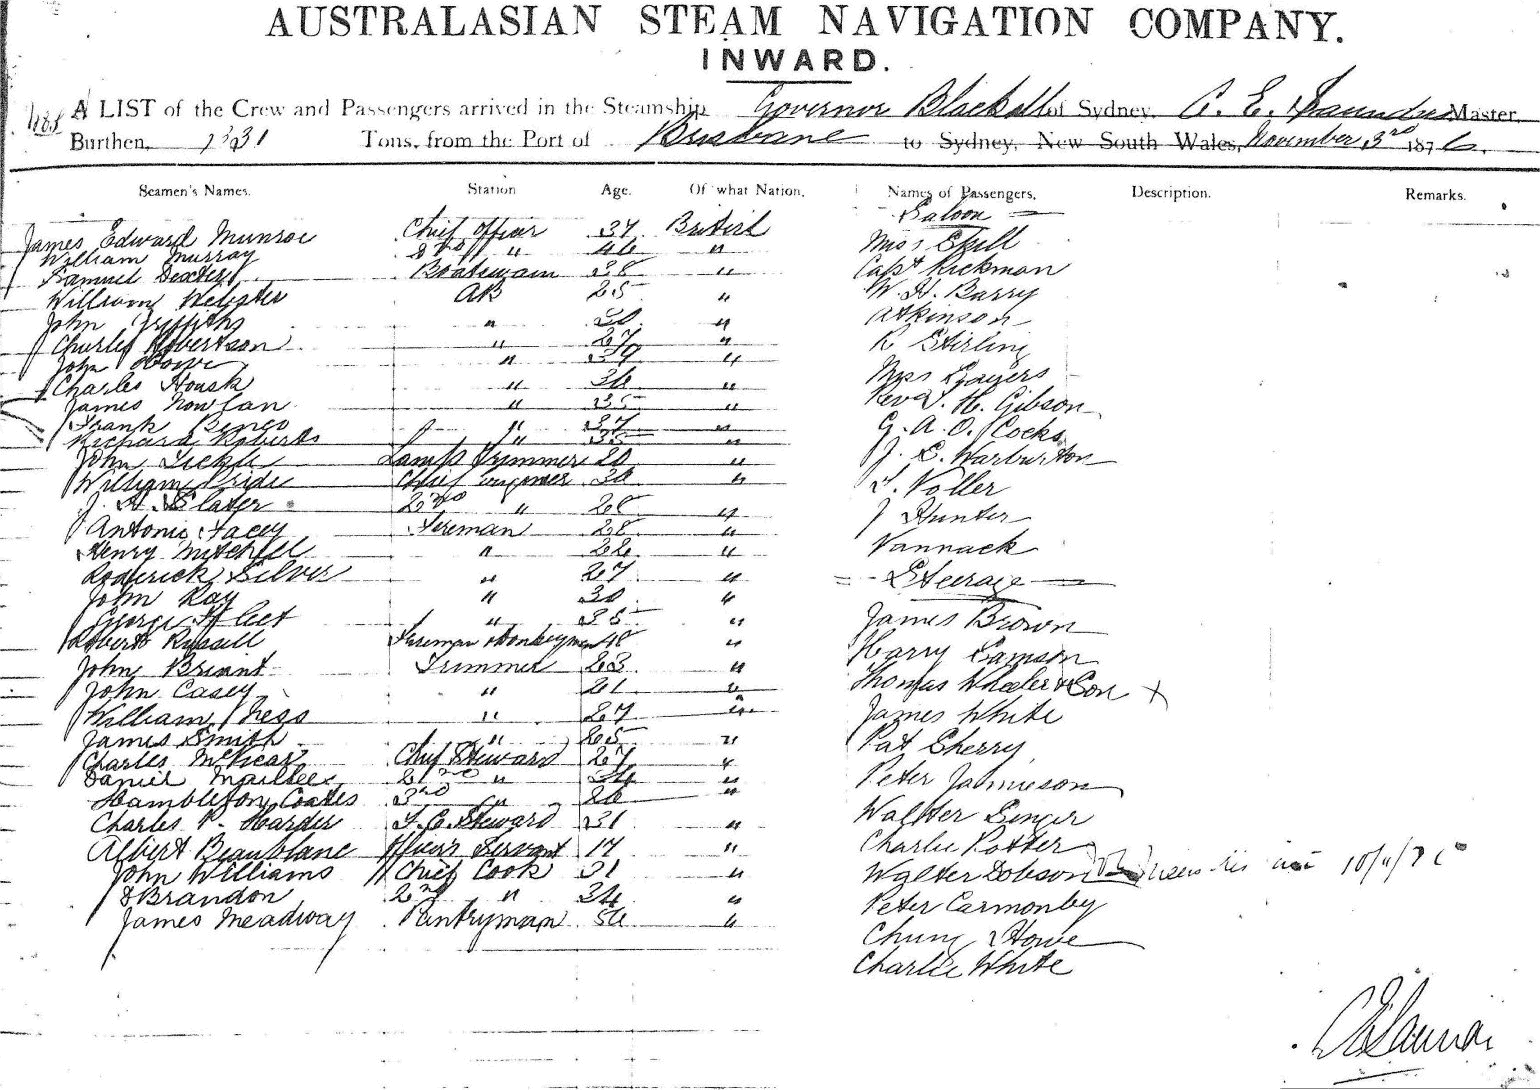 AUSTRALASIAN STEAM NAVIGATION COMPANY.
INWARD.
A LIST of the Crew and Passengers arrived in the Steamship Governor Blackall of Sydney, Master
Burthen, Tons, from the Port of Brisbane to Sydney, New South Wales, November 3rd 1876.
Seamen's Names. Station Age. Of what Nation.
James Edward Munroe Chief Officer 37 British
William Murray 2nd " 46 "
Samuel Dexter Boatswain 38 "
William Webster AB 25 "
John Griffiths " "
Charles Robertson " 27 "
John Howe " 39 "
Charles " 36 "
James Nowlan " 35 "
Frank " 37 "
Richard Roberts " 35 "
John Lamp Trimmer 20 "
William Pride Chief Engineer "
J. H. Slater 2nd " 28 "
Antonio Facey Fireman 28 "
Henry Mitchell " 22 "
Roderick Silver " 27 "
John Ray " 30 "
George Fleet " 35 "
Robert Russell Fireman Donkeyman 48 "
John Briant Trimmer 23 "
John Casey " 21 "
William Ness " 27 "
James Smith " 25 "
Charles Chief Steward 27 "
Daniel 2nd " 34 "
Hambleton Coates 3rd " 26 "
Charles P. Harder Steward 31 "
Albert Beaublanc Officers Servant 17 "
John Williams Chief Cook 31 "
Brandon 2nd " 34 "
James Meadway Pantryman 56 "
Names of Passengers, Description. Remarks.
Saloon
Capt Rickman
W. H. Barry
Atkinson
R Stirling
Miss
Revd. H. Gibson
G. A. O. Cocks
J. E. Warburton
Voller
J Hunter
Vannack
Steerage
James Brown
Harry Samson
Thomas Wheeler & Son x
James White
Pat Sherry
Peter Jamieson
Walter Singer
Charlie Potter
Walter Dobson
Peter Carmonby
Chung Howe
Charlie White